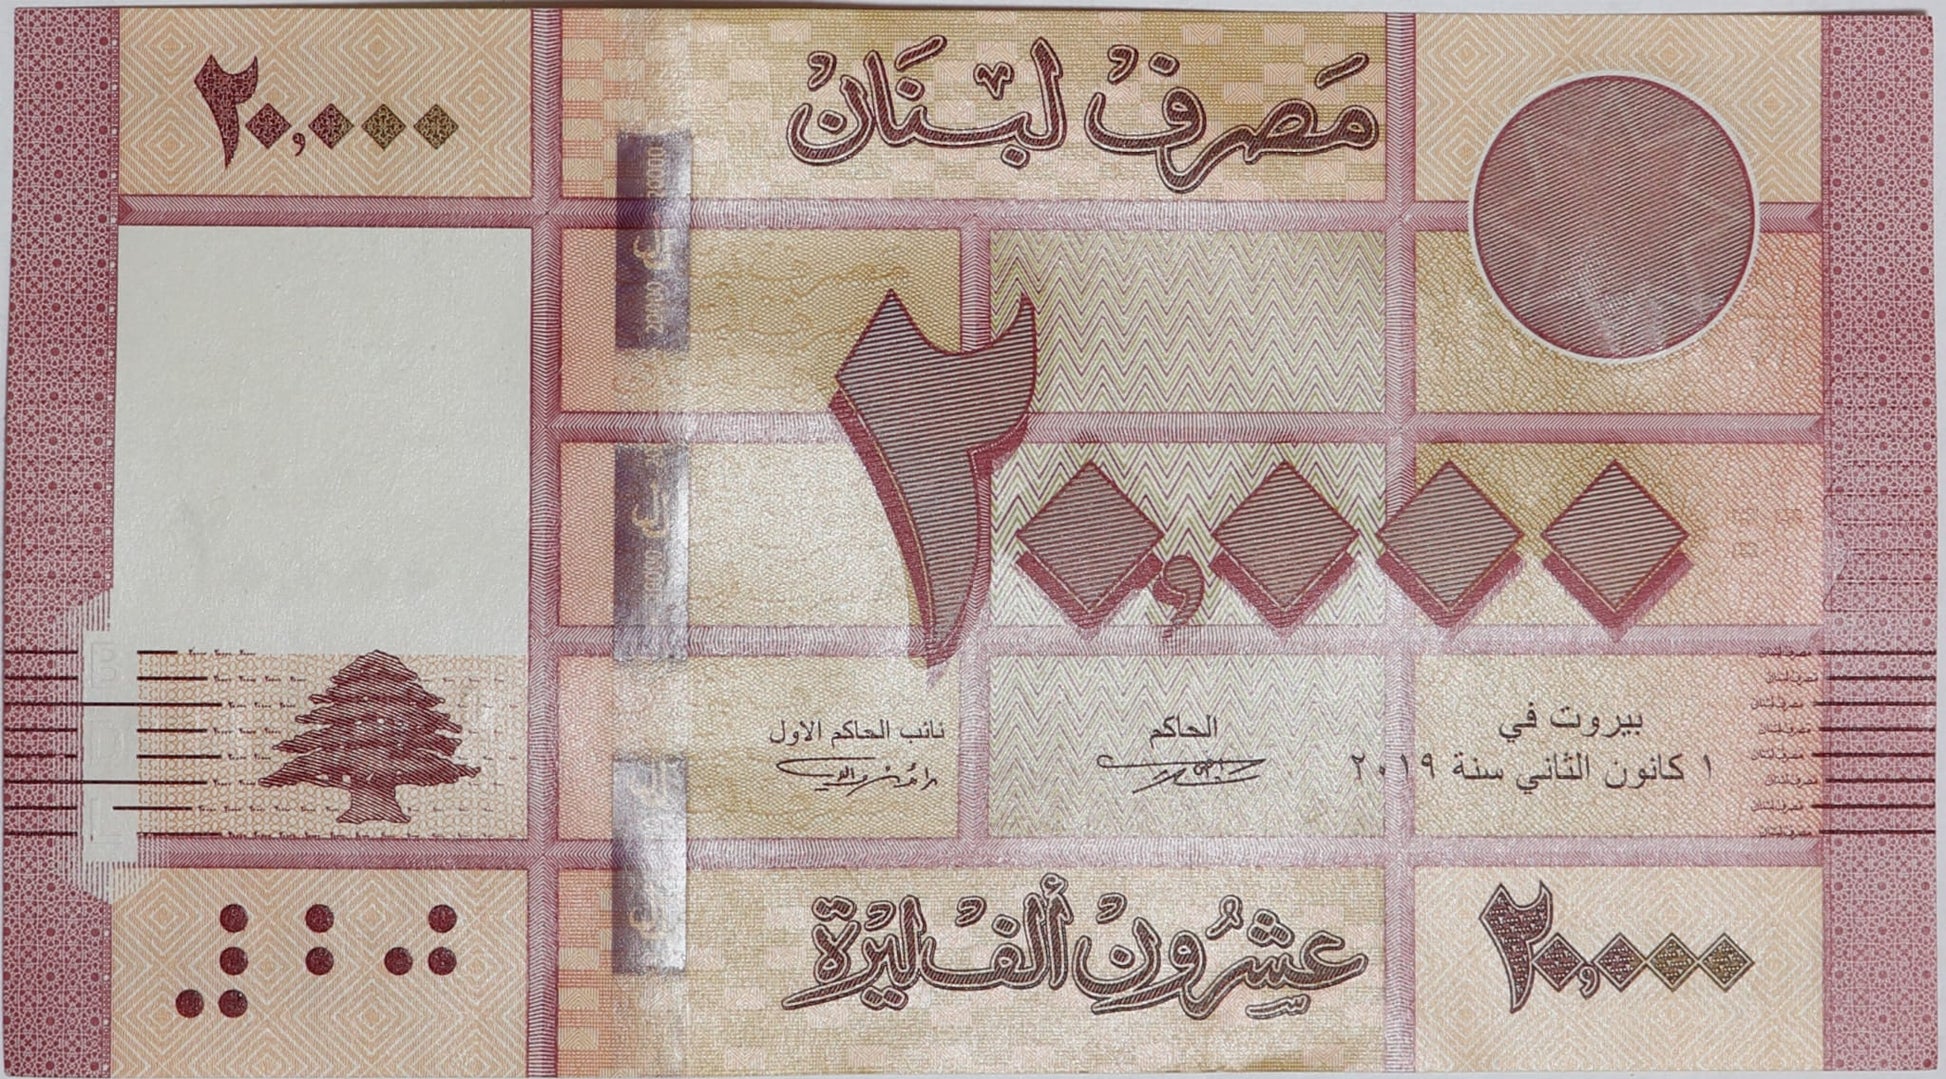 ٢٠,٠٠٠
مَصرفُ لبْنَانُ
20000
٢٠,٠٠٠
نائب الحاكم الاول
الحاكم
بيروت في
١ كانون الثاني سنة ٢٠١٩
BDL
عشِرُونُ ألفُ ليْرْة
٢٠,٠٠٠